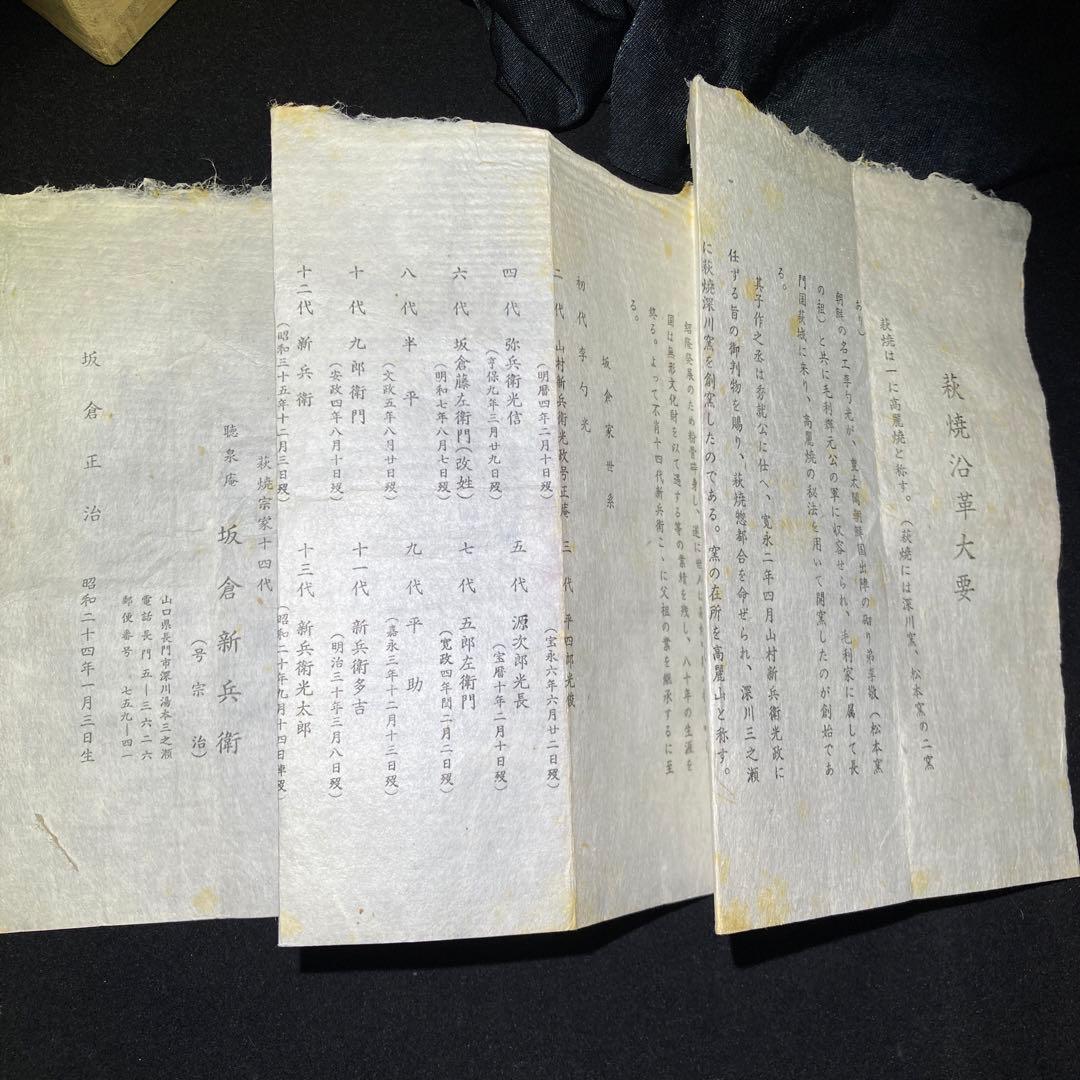 萩焼沿革大要
萩焼は一に高麗焼と称す。(萩焼には深川窯、松本窯の二窯
あり)
朝鮮の名工李勺光が、豊太閤朝鮮国出陣の砌り弟李敬(松本窯
の祖)と共に毛利輝元公の軍に収容せられ、毛利家に属して長
門国萩城に来り、高麗焼の秘法を用いて開窯したのが創始であ
る。
其子作之丞は秀就公に仕へ、寛永二年四月山村新兵衛光政に
任ずる旨の御判物を賜り、萩焼惣都合を命ぜられ、深川三之瀬
に萩焼深川窯を創窯したのである。窯の在所を高麗山と称す。
紹隆発展のため粉骨砕身し、遂に世人は
国は無形文化財を以て遇する等の業績を残し、八十年の生涯を
終る。よって不肖十四代新兵衛こゝに父祖の業を継承するに至
る。
坂倉家世系
初代 李勺光
二代 山村新兵衛光政号正庵 三代 平四郎光俊
(明暦四年二月十日歿) (宝永六年六月廿二日歿)
四代 弥兵衛光信 五代 源次郎光長
(享保九年三月廿九日歿) (宝暦十年二月十日歿)
六代 坂倉藤左衛門(改姓) 七代 五郎左衛門
(明和七年八月七日歿) (寛政四年閏二月二日歿)
八代 半平 九代 平助
(文政五年八月廿日歿) (嘉永三年十二月十三日歿)
十代 九郎衛門 十一代 新兵衛多吉
(安政四年八月十日歿) (明治三十年三月八日歿)
十二代 新兵衛 十三代 新兵衛光太郎
(昭和三十五年十二月三日歿) (昭和二十年九月十四日歿)
萩焼宗家十四代
聴泉庵 坂倉新兵衛
(号宗治)
山口県長門市深川湯本三之瀬
電話長門五―三六二六
郵便番号 七五九―四一
坂倉正治 昭和二十四年一月三日生